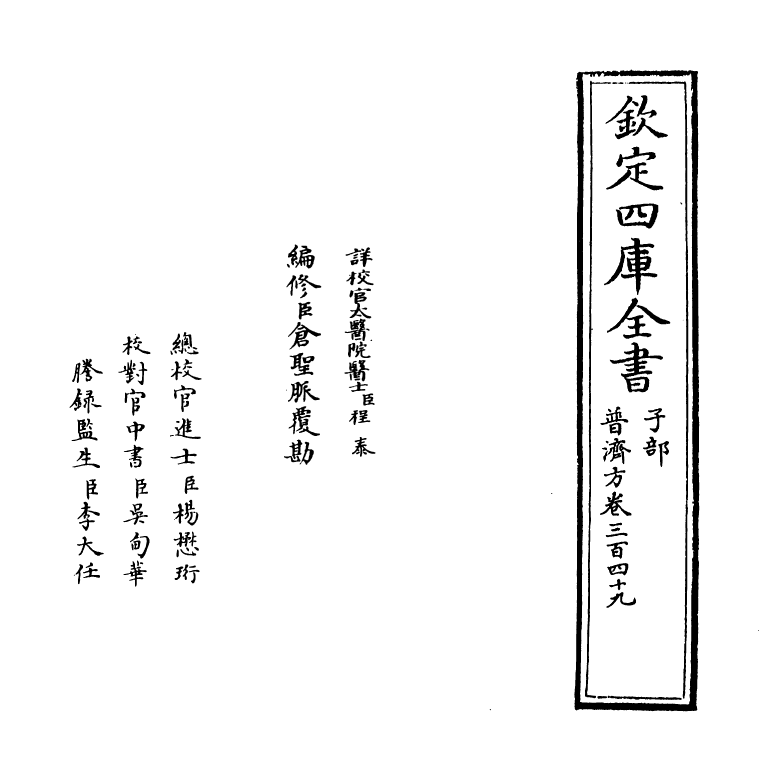 欽定四庫全書
子部
普濟方卷三百四十九
詳校官太醫院醫士臣程泰
編修臣倉聖脈覆勘
總校官進士臣楊懋珩
校對官中書臣吳甸華
謄錄監生臣李大任